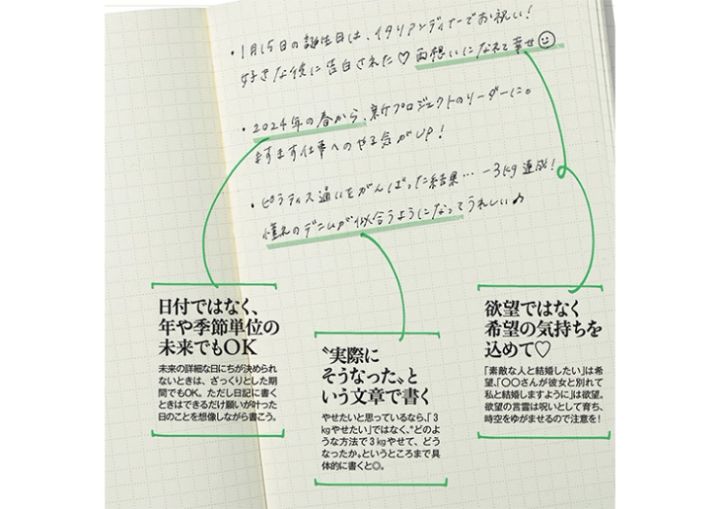 ・1月15日の誕生日は、イタリアンディナーでお祝い!
好きな彼に告白された♡両想いになれて幸せ☺
・2024年の春から、新プロジェクトのリーダーに。
ますます仕事へのやる気がUP!
・ピラティス通いをがんばった結果… −3kg達成!
憧れのデニムが似合うようになってうれしい♪
日付ではなく、
年や季節単位の
未来でもOK
未来の詳細な日にちが決められ
ないときは、ざっくりとした期
間でもOK。ただし日記に書く
ときはできるだけ願いが叶った
日のことを想像しながら書こう。
〝実際に
そうなった〟と
いう文章で書く
やせたいと思っているなら、「3
kgやせたい」ではなく、〝どのよ
うな方法で3kgやせて、どう
なったか〟というところまで具
体的に書くと◎。
欲望ではなく
希望の気持ちを
込めて♡
「素敵な人と結婚したい」は希
望、「〇〇さんが彼女と別れて
私と結婚しますように」は欲望。
欲望の言霊は呪いとして育ち、
時空をゆがませるので注意を!